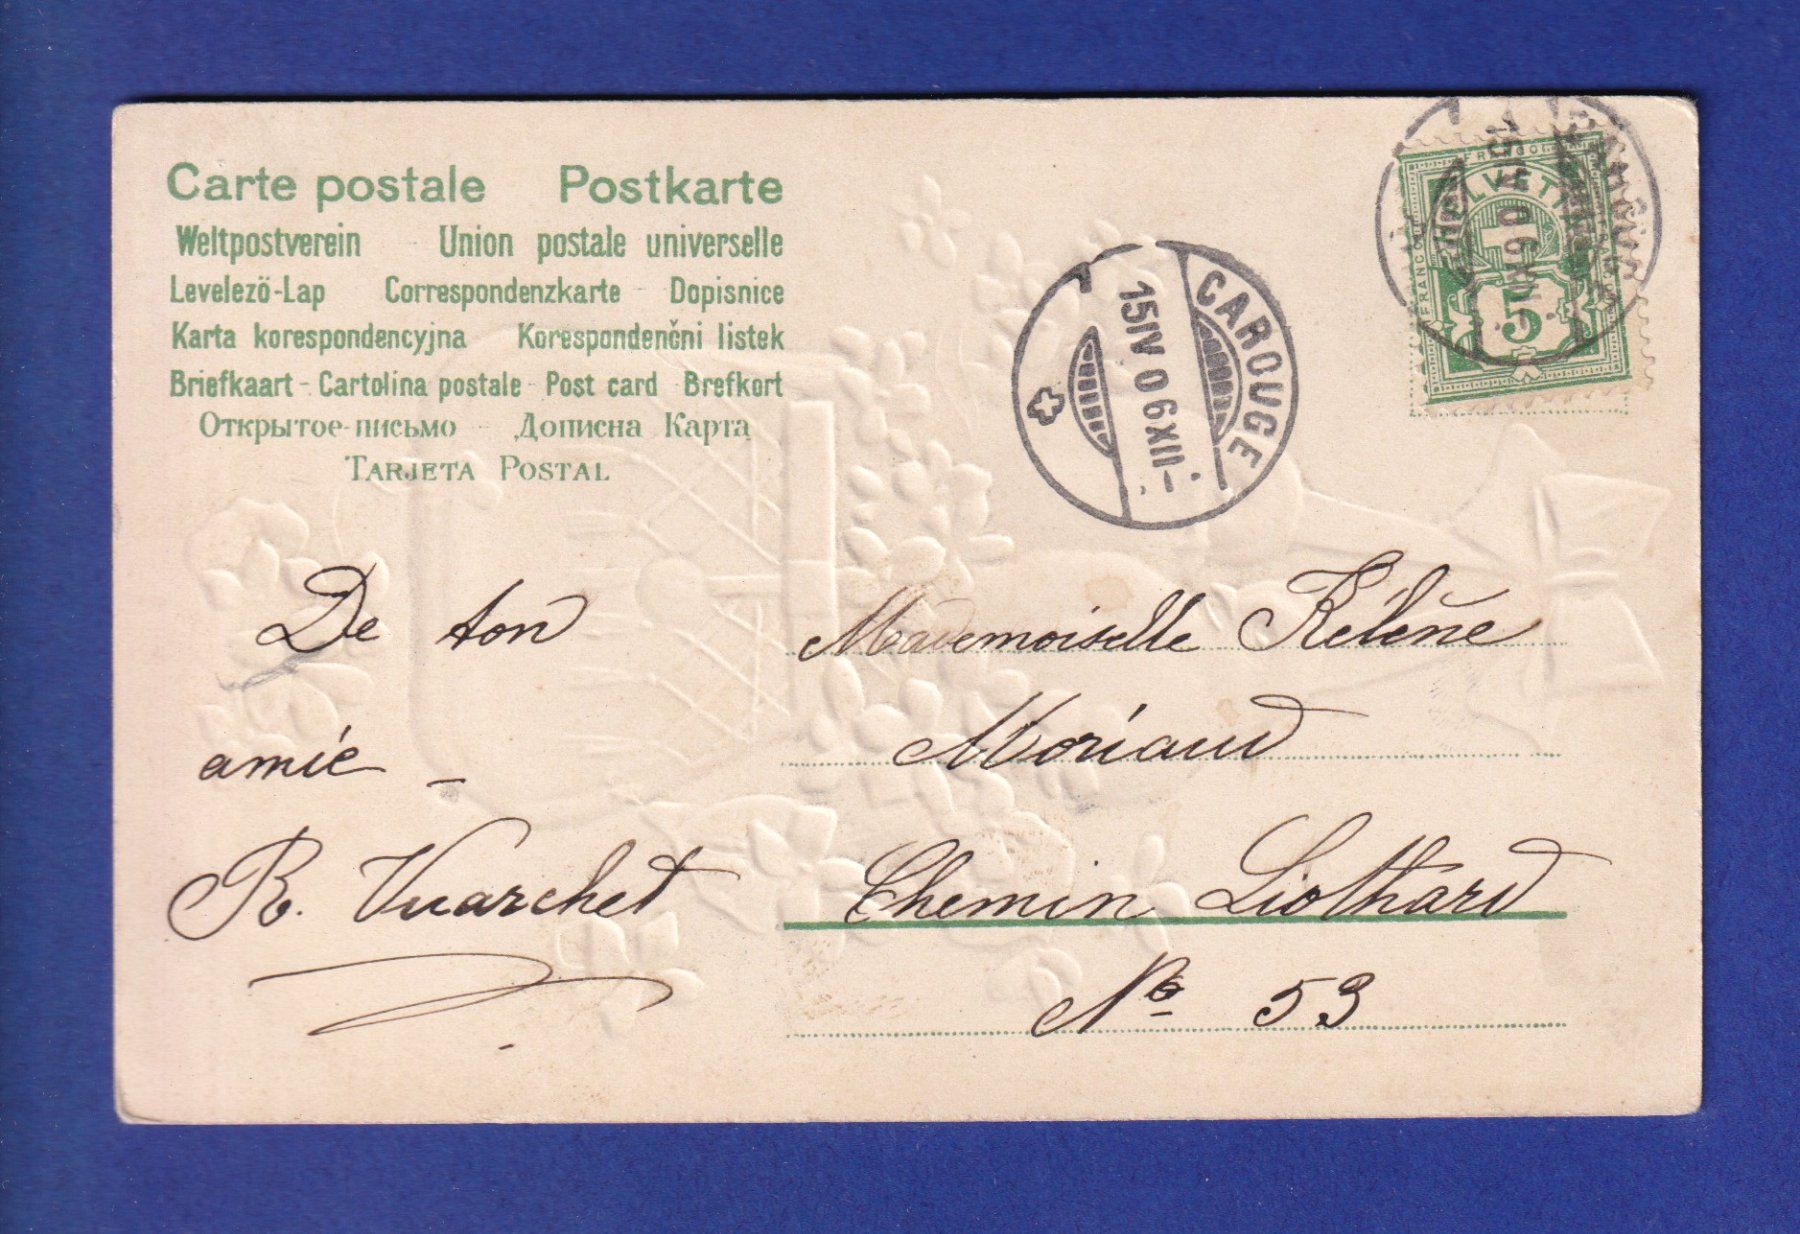 Carte postale Postkarte
Weltpostverein Union postale universelle
Levelezö-Lap Correspondenzkarte Dopisnice
Karta korespondencyjna Korespondenčni listek
Briefkaart - Cartolina postale - Post card Brefkort
Открытое-письмо Дописна Карта
TARJETA POSTAL
CAROUGE
15 IV 06 XII-
FRANCO
HELVETIA
FRANCO
5
De ton
amie -
R. Vuarchet
Mademoiselle Hélène
Moriaud
Chemin Liothard
No 53